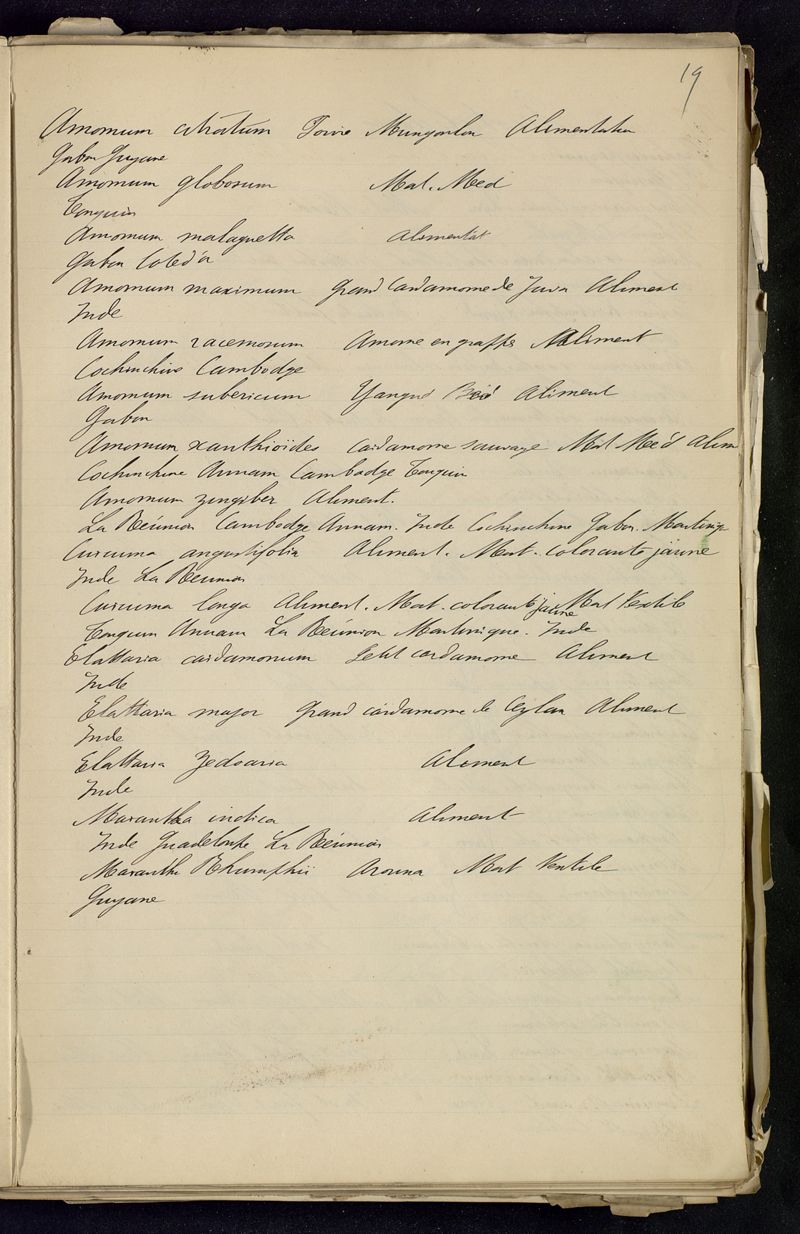 19
Amomum citratum Poivre Alimentation
Gabon Guyane
Amomum globosum Mat. Med
Tonquin
Amomum malaguetta Alimentat
Gabon Cote d'a
Amomum maximum Grand Cardamome de Java Aliment
Inde
Amomum racemosum Amome en grappe Aliment
Cochinchine Cambodge
Amomum subericum Aliment
Gabon
Amomum xanthioïdes Cardamome sauvage Mat Méd Alim
Cochinchine Annam Cambodge Tonquin
Amomum zingiber Aliment.
La Réunion Cambodge Annam. Inde Cochinchine Gabon. Martiniq
Curcuma angustifolia Aliment. Mat. colorante jaune
Inde La Réunion
Curcuma longa Aliment. Mat. colorante jaune Mat Textile
Tonquin Annam La Réunion Martinique. Inde
Elattaria cardamomum Petit cardamome Aliment
Inde
Elattaria major Grand cardamome de Ceylan Aliment
Inde
Elattaria Zedoaria Aliment
Inde
Marantha indica Aliment
Inde Guadeloupe La Réunion
Marantha Rhumphii Arouma Mat Textile
Guyane